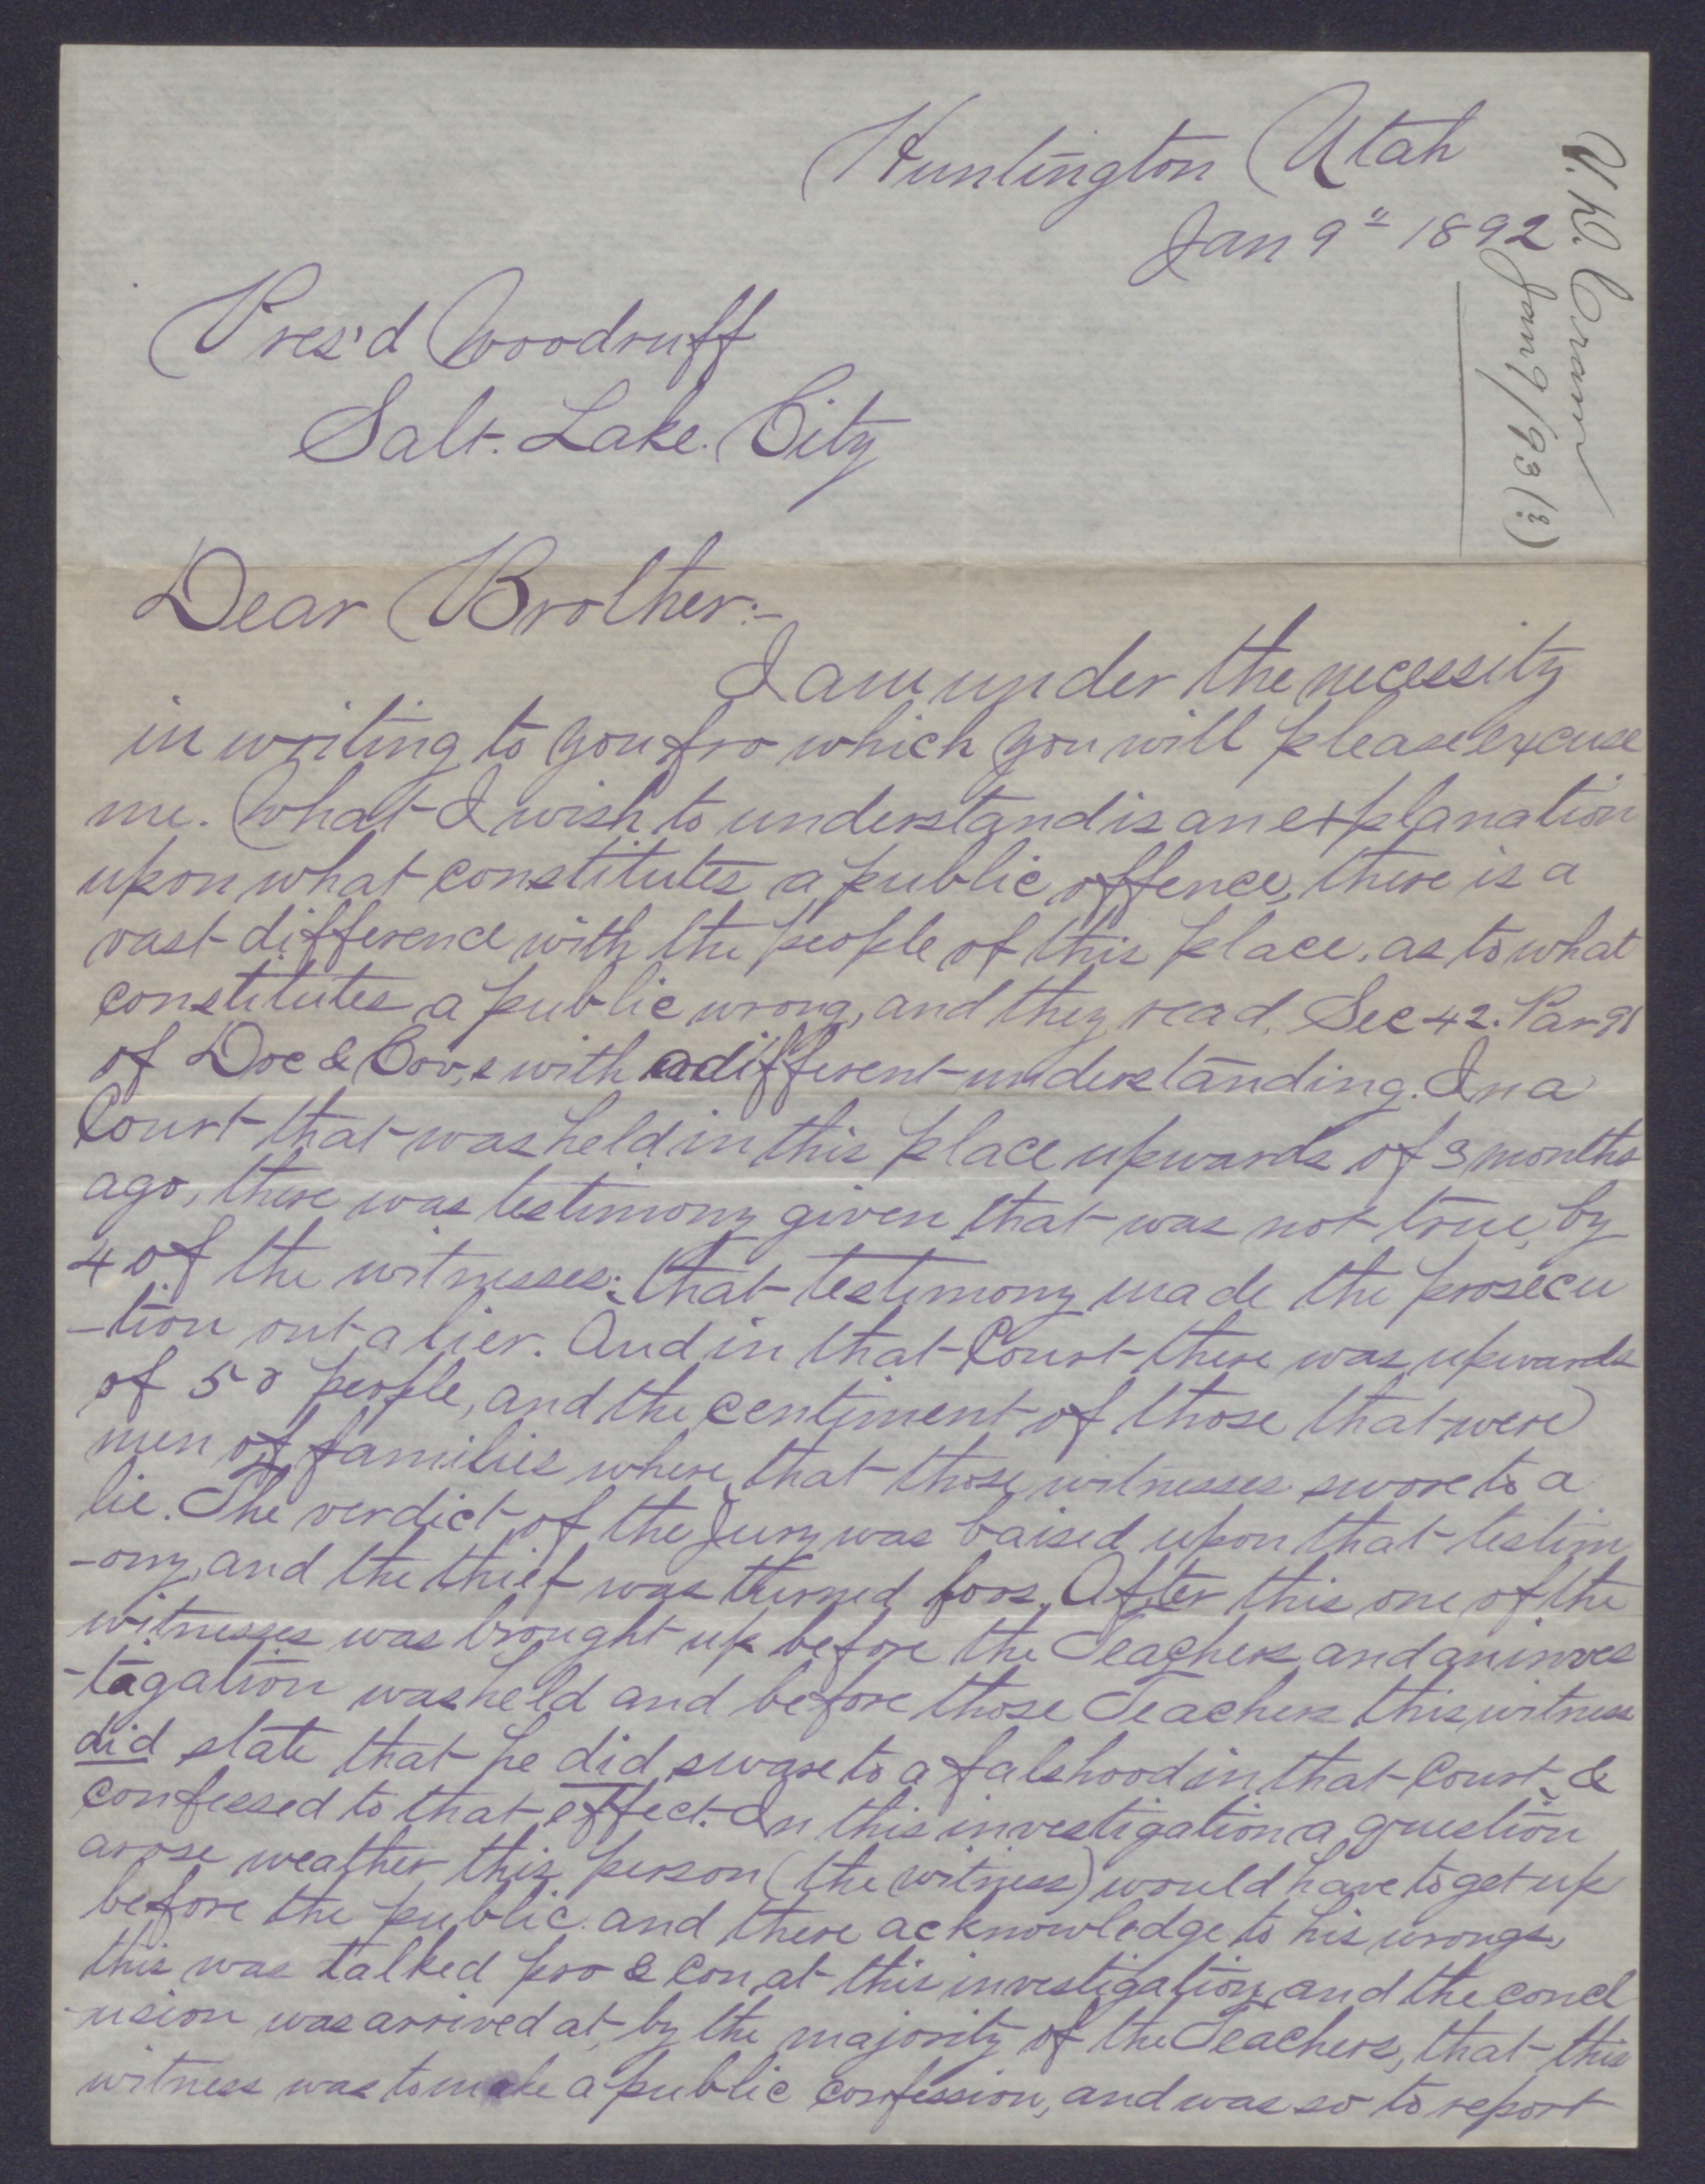 Huntington Utah
Jan 9" 1892
Jany 9/93 (?)
Pres'd Woodruff
Salt. Lake. City
Dear Brother:-
I am under the necessity
in writing to you fro which you will please excuse
me. What I wish to understand is an explanation
upon what constitutes a public offence, there is a
vast difference with the people of this place. as to what
constitutes a public wrong, and they read. Sec 42. Par 91
of Doc & Cov,s with a different understanding. In a
Court that was held in this place upwards of 3 months
ago, there was testimony given that was not true, by
4 of the witnesses; that testimony made the prosecu
-tion out a lier. And in that Court there was upwards
of 50 people, and the centiment of those that were
men of families where, that those witnesses swore to a
lie. The verdict of the Jury was baised upon that testim
-ony, and the thief was turned loos. After this one of the
witnesses was brought up before the Teachers and an inves
-tagation was held and before those Teachers this witness
did state that he did sware to a falshood in that Court, &
confessed to that effect. In this investigation a question
arose weather this person (the witness) would have to get up
before the public. and there acknowledge to his wrongs,
this was talked pro & con, at this investigation, and the concl
-usion was arrived at, by the majority of the Teachers, that this
witness was to make a public confession, and was so to report